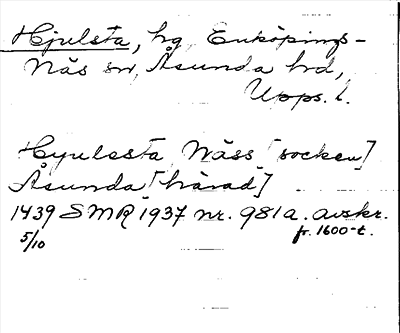 Hjulsta, hg, Enköpings-
Näs sn, Åsunda hd,
Upps. l.
Hyulssta Näss [socken]
Åsunda [härad]
1439 SMR 1937 nr. 981a. avskr.
5/10 fr. 1600-t.